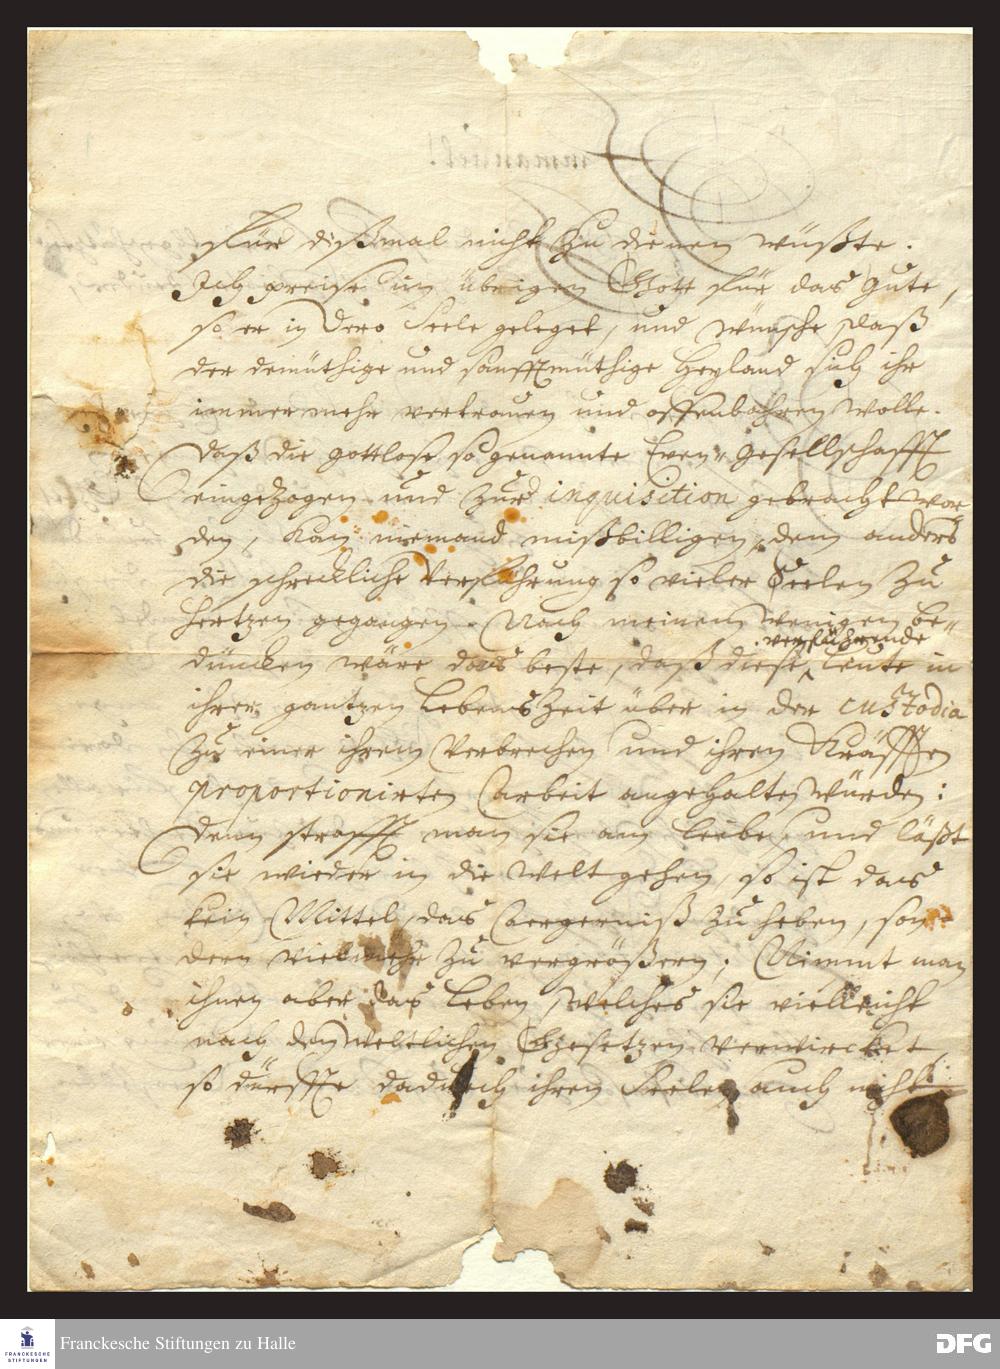 für dißmal nicht zu dienen wüßte.
Ich preise im übrigen Gott für das Gute,
so er in Dero Seele geleget, und wünsche, daß
der demüthige und sanfftmüthige Heyland sich ihr
immermehr vertrauen und offenbahren wolle.
Daß die gottlose so genannte Even-Gesellschafft
eingezogen und zur inquisition gebracht wor
den, kan niemand mißbilligen, dem anders
die schreckliche Verführung so vieler Seelen zu
Hertzen gegangen. Nach meinem wenigen be-
verführende
düncken wäre das beste, daß diese Leute in
ihrer gantzen Lebenszeit über in der custodia
zu einer ihrem Verbrechen und ihren Kräfften
proportionirten Arbeit angehalten würden:
denn strafft man sie am Leibe, und läßt
sie wieder in die Welt gehen, so ist das
kein Mittel, das Aergerniß zu heben, son-
dern vielmehr zu vergrößern; Nimmt man
ihnen aber das Leben, welches sie vielleicht
nach den weltlichen Gesetzen verwircket
so dürffte dadurch ihren Seelen auch nicht
Franckesche Stiftungen zu Halle
FRANCKESCHE
STIFTUNGEN
DFG